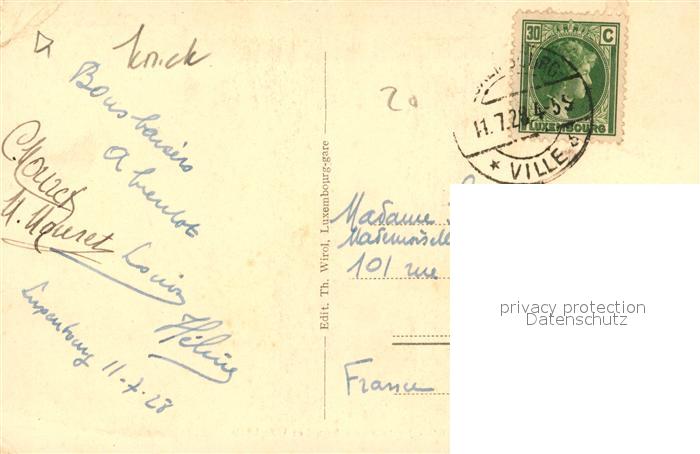 Knick
Bons baisers
A bientot
C. Mouret
M. Mouret
Louise
Hélène
Luxembourg 11-7-28
20
Edit. Th. Wirol, Luxembourg-gare
30 C
LUXEMBOURG
LUXEMBOURG
11.7.28.4-5S
* VILLE
Madame
Mademoiselle
101 rue
France
privacy protection
Datenschutz